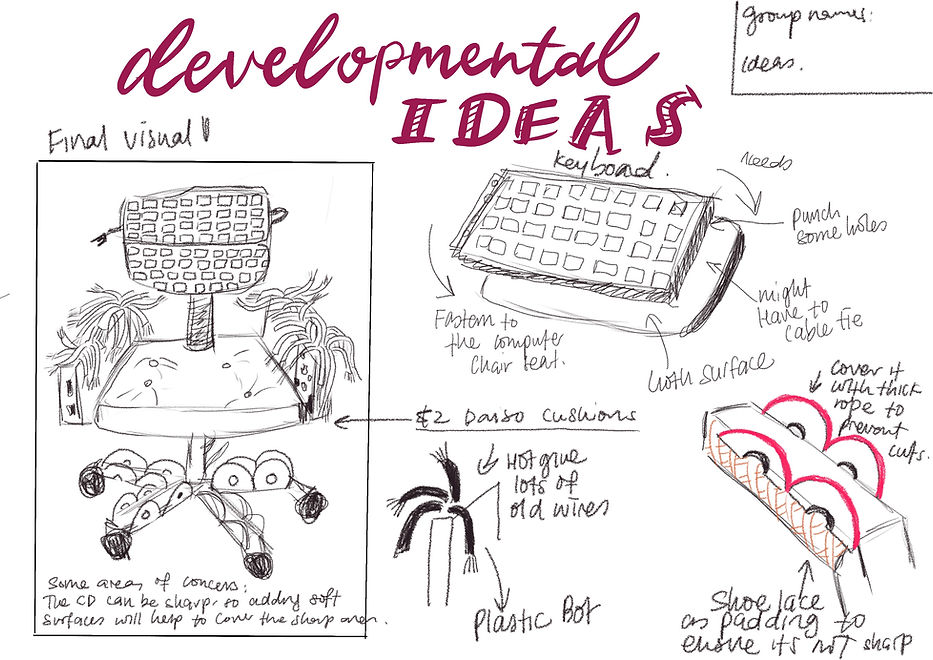 developmental
IDEAS
group names:
ideas.
Final visual
keyboard.
needs
punch
some holes
might
Have to
cable tie
Fasten to
the computer
chair seat.
cloth surface
cover it
with thick
rope to
prevent
cuts.
$2 Daiso cushions
Hot glue
lots of
old wires
Plastic Bot
Shoe lace
as padding to
ensure its not sharp
Some areas of concern:
The CD can be sharp, so adding soft
surfaces will help to cover the sharp area.